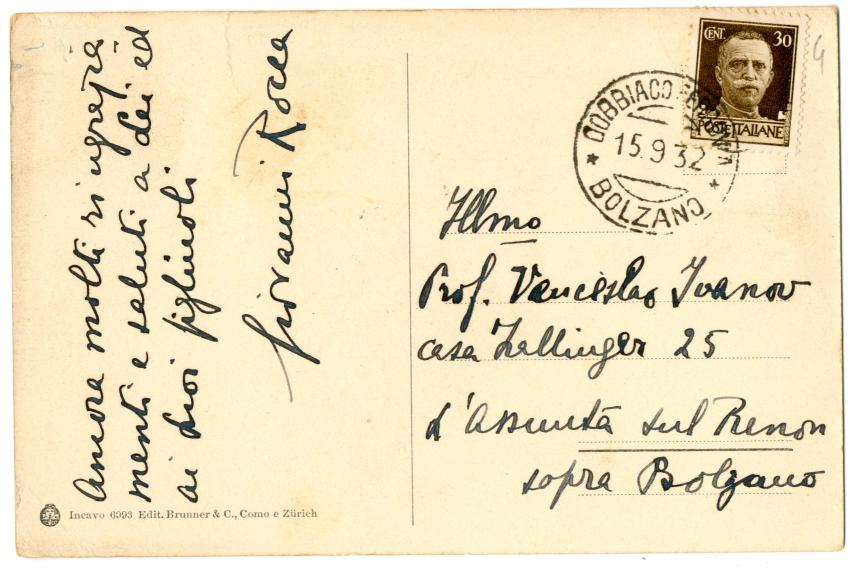 Ancora molti ringrazia
menti e saluti a Lei ed
ai Suoi figliuoli
Giovanni Rocca
CENT. 30
POSTE ITALIANE
DOBBIACO
15.9.32
* BOLZANO *
Illmo
Prof. Venceslao Ivanov
casa Zallinger 25
l'Assunta sul Renon
sopra Bolzano
4
Incavo 6993 Edit. Brunner & C., Como e Zürich